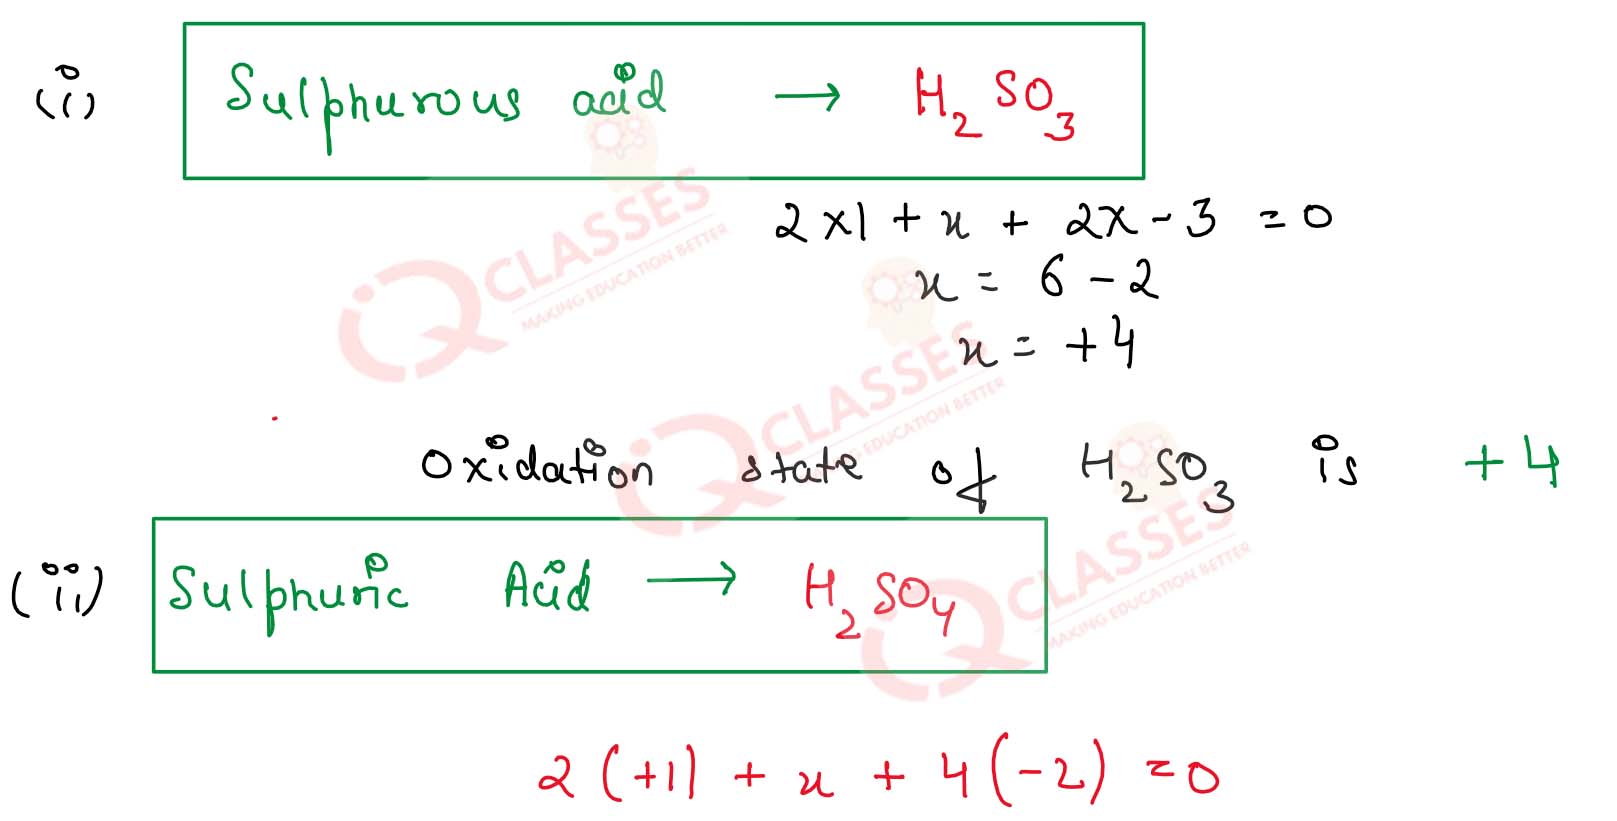 (i) Sulphurous acid → H₂SO₃
2x1 + x + 2x-3 = 0
x = 6 - 2
x = +4
Oxidation state of H₂SO₃ is +4
(ii) Sulphuric Acid → H₂SO₄
2(+1) + x + 4(-2) = 0
iQ CLASSES
MAKING EDUCATION BETTER
iQ CLASSES
MAKING EDUCATION BETTER
iQ CLASSES
MAKING EDUCATION BETTER